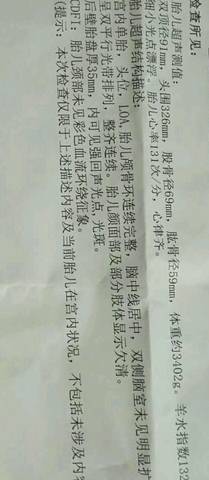 检查所见:
胎儿超声测值:
双顶径91mm, 头围326mm, 股骨径69mm, 肱骨径59mm, 体重约3402g。羊水指数132
细小光点漂浮。胎儿心率131次/分, 心律齐。
胎儿超声结构描述:
宫内单胎, 头位, LOA, 胎儿颅骨环连续完整, 脑中线居中, 双侧脑室未见明显扩
呈双平行光带排列, 整齐连续。胎儿颜面部及部分肢体显示欠清。
后壁胎盘厚35mm, 内可见强回声光点, 光斑。
CDFI: 胎儿颈部未见彩色血流环绕征象。
(提示: 本次检查仅限于上述描述内容及当前胎儿在宫内状况, 不包括未涉及内容